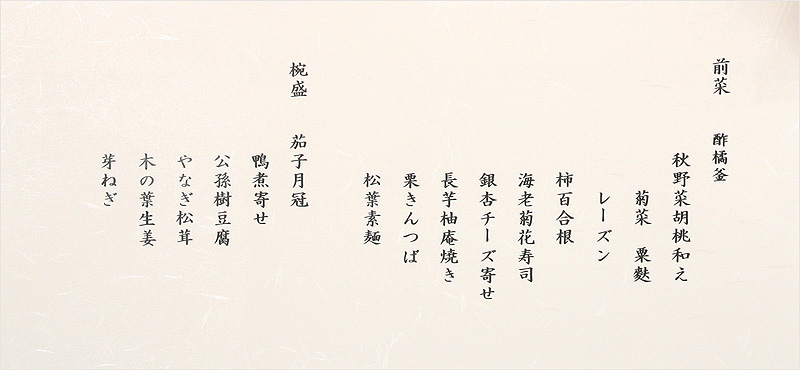 前菜　酢橘釜
秋野菜胡桃和え
菊菜　粟麩
レーズン
柿百合根
海老菊花寿司
銀杏チーズ寄せ
長芋柚庵焼き
栗きんつば
松葉素麺
椀盛　茄子月冠
鴨煮寄せ
公孫樹豆腐
やなぎ松茸
木の葉生姜
芽ねぎ